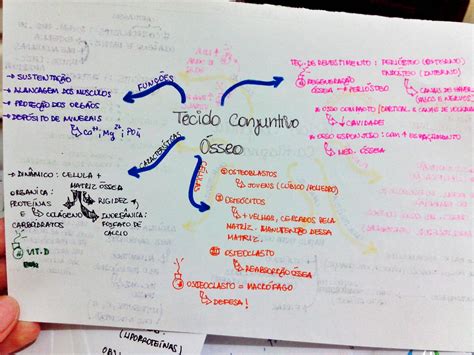 Tecido Conjuntivo
Ósseo
FUNÇÕES
→ SUSTENTAÇÃO
→ ALAVANCAGEM DOS MÚSCULOS
→ PROTEÇÃO DOS ORGÃOS
→ DEPÓSITO DE MINERAIS
Ca²⁺, Mg²⁺, PO₄
CARACTERÍSTICAS
→ DINÂMICO: CELULA +
MATRIZ ÓSSEA
ORGÂNICA:
PROTEÍNAS
E COLÁGENO
CARBOIDRATOS
RIGIDEZ
INORGÂNICA:
FOSFATO DE
CALCIO
VIT. D
CÉLULAS
① OSTEOBLASTOS
JOVENS
② OSTEÓCITOS
+ VELHAS, CERCADOS PELA
MATRIZ - MANUTENÇÃO DESSA
MATRIZ.
③ OSTEOCLASTO
REABSORÇÃO ÓSSEA
OSTEOCLASTO = MACRÓFAGO
DEFESA!
TEC. DE REVESTIMENTO: PERIÓSTEO (EXTERNO)
ENDÓSTEO (INTERNO)
REGENERAÇÃO
ÓSSEA → PERIÓSTEO
CANAIS DE
(VASOS E NERVOS)
→ OSSO COMPACTO (CORTICAL)
CAVIDADES
→ OSSO ESPONJOSO: COM + ESPAÇAMENTO
MED. ÓSSEA
(LIPOPROTEÍNAS)